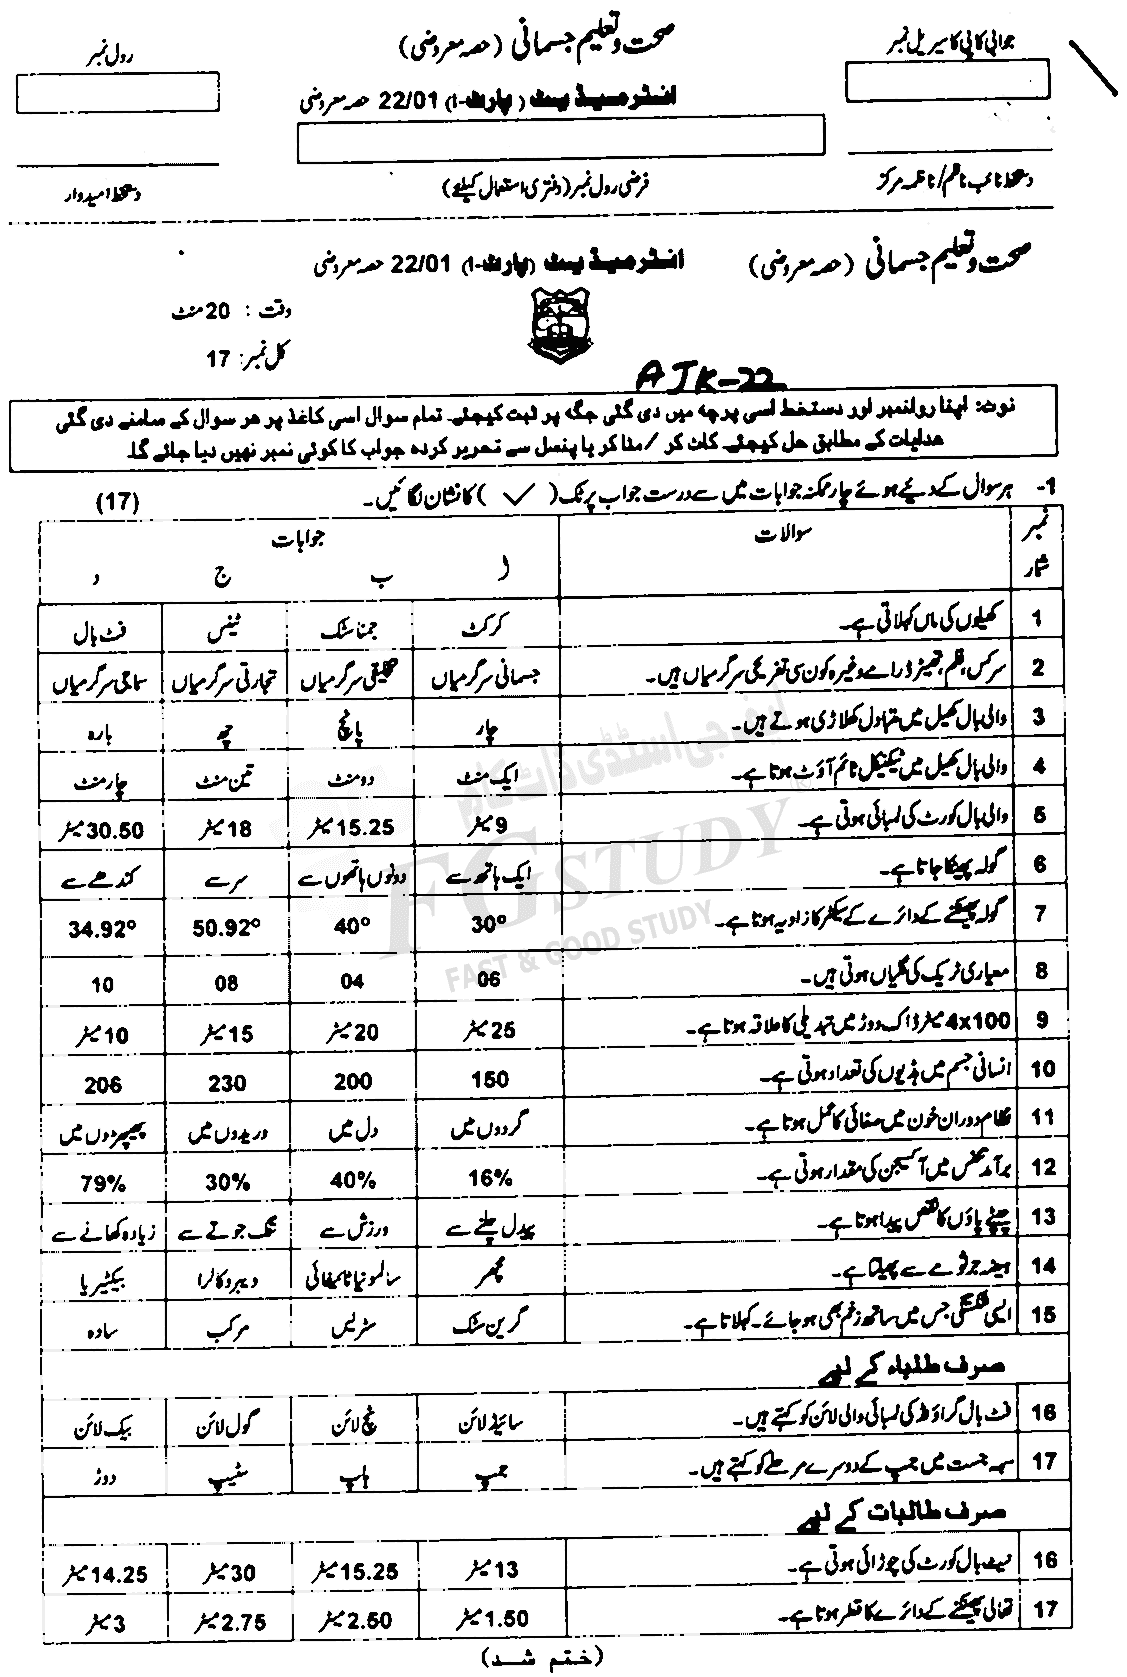 جوابی کاپی کا سیریل نمبر
صحت و تعلیم جسمانی (حصہ معروضی)
رول نمبر
انٹرمیڈیٹ (پارٹ-I) 22/01 حصہ معروضی
دستخط نائب ناظم/ناظمہ مرکز
فرضی رول نمبر (دفتری استعمال کیلئے)
دستخط امیدوار
صحت و تعلیم جسمانی (حصہ معروضی) انٹرمیڈیٹ (پارٹ-I) 22/01 حصہ معروضی
وقت: 20 منٹ
کل نمبر: 17
AJK-22
نوٹ: اپنا رولنمبر اور دستخط اسی پرچہ میں دی گئی جگہ پر ثبت کیجئے۔ تمام سوال اسی کاغذ پر ہر سوال کے سامنے دی گئی
ہدایات کے مطابق حل کیجئے۔ کاٹ کر / مٹا کر یا پنسل سے تحریر کردہ جواب کا کوئی نمبر نہیں دیا جائے گا۔
1- ہر سوال کے دیئے ہوئے چار ممکنہ جوابات میں سے درست جواب پر ٹک (✓) کا نشان لگائیں۔ (17)
نمبر شمار سوالات جوابات
ا ب ج د
1 کھیلوں کی ماں کہلاتی ہے۔ کرکٹ جمناسٹک ٹینس فٹ بال
2 سرکس، فلم، تھیٹر ڈرامے وغیرہ کون سی تفریحی سرگرمیاں ہیں۔ جسمانی سرگرمیاں تخلیقی سرگرمیاں تجارتی سرگرمیاں سماجی سرگرمیاں
3 والی بال کھیل میں متبادل کھلاڑی ہوتے ہیں۔ چار پانچ چھ بارہ
4 والی بال کھیل میں ٹیکنیکل ٹائم آؤٹ ہوتا ہے۔ ایک منٹ دو منٹ تین منٹ چار منٹ
5 والی بال کورٹ کی لمبائی ہوتی ہے۔ 9 میٹر 15.25 میٹر 18 میٹر 30.50 میٹر
6 گولہ پھینکا جاتا ہے۔ ایک ہاتھ سے دونوں ہاتھوں سے سر سے کندھے سے
7 گولہ پھینکنے کے دائرے کے سیکٹر کا زاویہ ہوتا ہے۔ 30° 40° 50.92° 34.92°
8 معیاری ٹریک کی گلیاں ہوتی ہیں۔ 06 04 08 10
9 4x100 میٹر ڈاک دوڑ میں تبدیلی کا علاقہ ہوتا ہے۔ 25 میٹر 20 میٹر 15 میٹر 10 میٹر
10 انسانی جسم میں ہڈیوں کی تعداد ہوتی ہے۔ 150 200 230 206
11 نظام دوران خون میں صفائی کا عمل ہوتا ہے۔ گردوں میں دل میں وریدوں میں پھیپھڑوں میں
12 برآمد تنفس میں آکسیجن کی مقدار ہوتی ہے۔ 16% 40% 30% 79%
13 چپٹے پاؤں کا نقص پیدا ہوتا ہے۔ پیدل چلنے سے ورزش سے تنگ جوتے سے زیادہ کھانے سے
14 ہیضہ جرثومے سے پھیلتا ہے۔ مچھر سالمونیا ٹائیفائی ویبرو کالرا بیکٹیریا
15 ایسی شکستگی جس میں ساتھ زخم بھی ہو جائے۔ کہلاتا ہے۔ گرین سٹک سٹریس مرکب سادہ
صرف طلباء کے لیے
16 فٹ بال گراؤنڈ کی لمبائی والی لائن کو کہتے ہیں۔ سائیڈ لائن ٹچ لائن گول لائن بیک لائن
17 سہہ جست میں جمپ کے دوسرے مرحلے کو کہتے ہیں۔ جمپ ہاپ سٹیپ دوڑ
صرف طالبات کے لیے
16 نیٹ بال کورٹ کی چوڑائی ہوتی ہے۔ 13 میٹر 15.25 میٹر 30 میٹر 14.25 میٹر
17 تھالی پھینکنے کے دائرے کا قطر ہوتا ہے۔ 1.50 میٹر 2.50 میٹر 2.75 میٹر 3 میٹر
(ختم شد)
ایف جی اسٹڈی ڈاٹ کام
FGSTUDY
FAST & GOOD STUDY